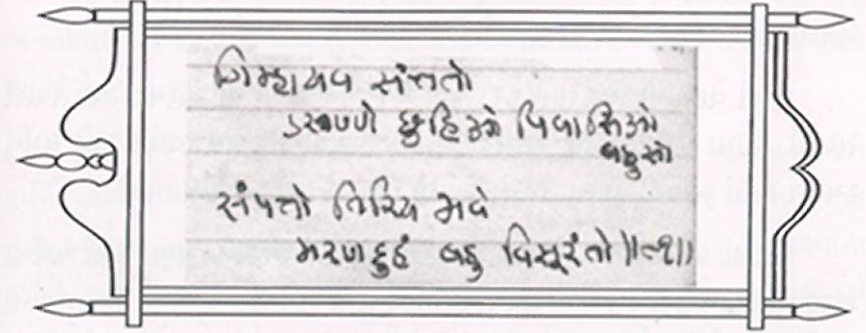 ગિમ્હાયવ સંતત્તો
ઽરણ્ણે છુહિઓ પિવાસિઓ
બહુસો
સંપત્તો તિરિય ભવે
મરણદુહં બહુ વિસૂરંતો ||૮૧||